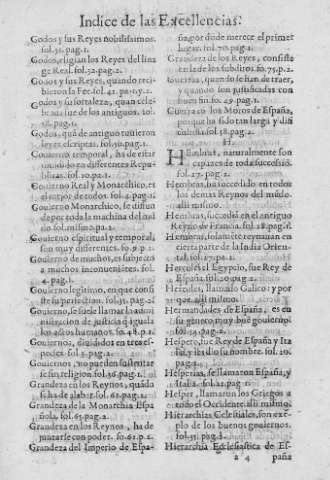 Indice de las Excellencias.
Godos y sus Reyes nobilissimos.
fol. 31. pag. 1.
Godos, eligian los Reyes del lina
ge Real. fol. 32. pag. 2.
Godos y sus Reyes, quando reci
bieron la Fee. fol. 42.
Godos y su fortaleza, quan cele-
brada fue de los antiguos. fol.
pag. 1.
Godos, que de antiguo tuuieron
leyes escriptas. fol. pag. 1.
Gouierno temporal, ha de estar
vnido en differentes Repu-
blicas. fol. 10. pag. 1.
Gouierno Real y Monarchico, es
el mejor de todos. fol. 4. pag. 1.
Gouierno Monarchico, se distin
pone toda la machina del mũ
do. fol. mismo. pa. 1.
Gouierno espiritual y temporal,
son muy differentes. fo. 9. p. 1.
Gouierno de muchos, es subjecto
a muchos inconuenientes. fol.
4. pag. 1.
Gouierno legitimo, en que consi
ste su perfection. fol. 35. pag. 2.
Gouierno, se suele llamar la admi
nistracion de justicia q̃ iguala
los actos humanos. fo. 48. p. 1.
Gouiernos, diuididos en tres es-
pecies. fol. 3. pag. 1.
Gouiernos, no pueden sustentar
se sin religion. fol. 36. pag. 1.
Grandeza en los Reynos, quãdo
se ha de alabar. fol. 61. pag. 2.
Grandeza de la Monarchia Espa
ñola, fol. 65. pag. 2.
Grandeza en los Reynos, ha de
juntarse con poder. fo. 61. p. 2.
Grandeza del Imperio de Espa-
ña, por do de merece el primer
lugar. fol. 70. pag. 1.
Grandeza de los Reyes, consiste
en la de los subditos. fo. 75. p. 2.
Guerras, quando se han de traer,
y quando son justificadas con
buen fin. fo. 49. pag. 1.
Guerra de los Moros de España,
porque ha sido tan larga y difi
cultosa. fol. 58. pag. 2.
H.
Hembras, naturalmente son
capaces de toda successiõ.
fol. 27. pag. 2.
Hembras, hã succedido en todos
los demas Reynos del mũdo.
alli mismo.
Hembras, succedia en el antiguo
Reyno de Francia. fol. 28. pag. 1.
Hembras, solamẽte reynauan en
cierta parte de la India Orien-
tal. fol. 27. pa. 2.
Hercules el Egypcio, fue Rey de
España. fol. 20. pag. 2.
Hercules, llamado Galico: y por
que. alli mismo.
Hermandades de España, es en
su genero muy buẽ gouierno.
fol. 45. pag. 2.
Hespero, fue Rey de España y Ita
lia, y les dio su nombre. fol. 20.
pag. 1.
Hesperias, se llamaron España, y
Italia. fol. 21. pag. 1.
Hesper, llamaron los Griegos a
todo el Occidente. alli mismo.
Hierarchias Celestiales, son exẽ-
plo de los buenos gouiernos.
fol. 35. pag. 1.
Hierarchia Ecclesiastica de Es-
a 4 paña